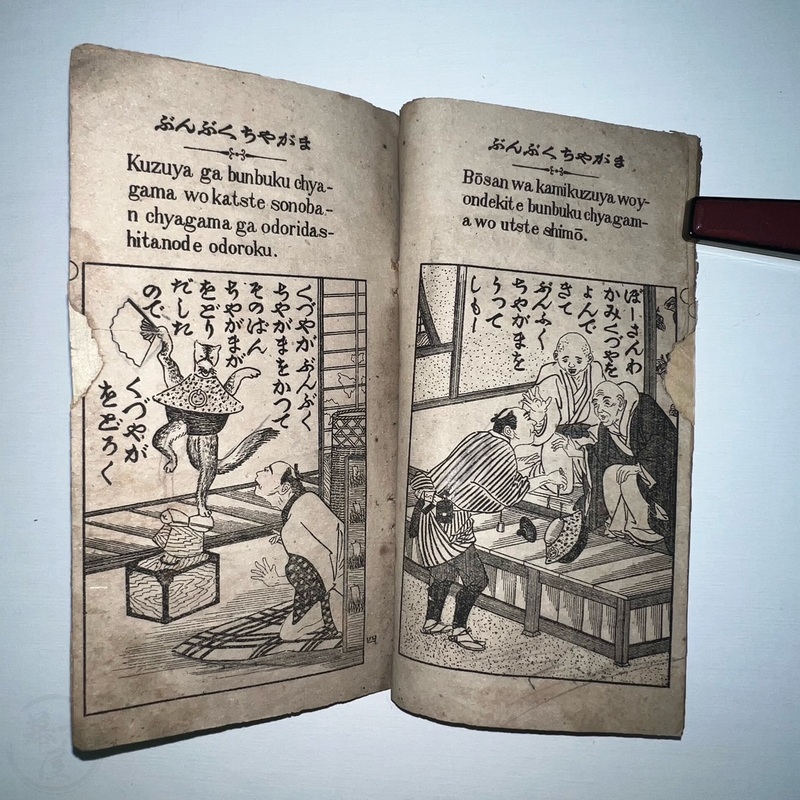 ぶんぶくちやがま
Bōsan wa kamikuzuya woy-
ondekite bunbuku chyagam-
a wo utste shimō.
ぼーさんわ
かみくづやを
よんで
きて
ぶんぶく
ちやがまを
うつて
しもー
ぶんぶくちやがま
Kuzuya ga bunbuku chya-
gama wo katste sonoba-
n chyagama ga odoridas-
hitanode odoroku.
くづやがぶんぶく
ちやがまをかつて
そのばん
ちやがまが
をどり
だした
ので
くづやが
をどろく
四